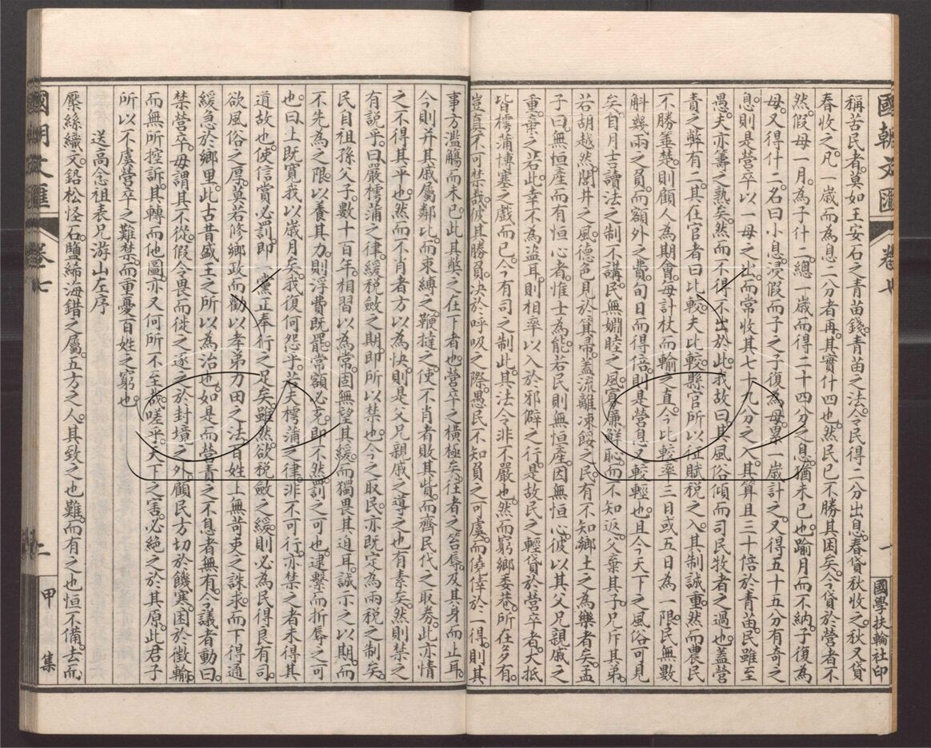 國朝文匯 卷七 一 國學扶輪社印
稱苦民者莫如王安石之青苗錢青苗之法令民得二分出息春貸秋收之秋又貸
春收之凡一歲而為息二分者再其實什四也然民已不勝其困矣今貸於營者不
然假母一月為子什二總一歲而得二十四分之息猶未已也踰月而不納子復為
母又得什二名曰小息受假而子之子復為母畧一歲計之又得五十五分有奇之
息則是營卒以一母之出而常收其七十九分之入其算且三十倍於青苗民雖至
愚夫亦籌之熟矣然而不得不出於此我故曰其風俗傾而司民牧者之過也蓋營
責之弊有二其在官者曰比較夫比較縣官所以征賦稅之入其制誠重然而農民
不勝垂楚則顧人為期會母計杖而輸之直今比較率三日或五日為一限民無數
斛幾兩之負而額外之費旬日而得倍則是營息又較輕也且今天下之風俗可見
矣自月吉讀法之制不講民無嫺睦之風寡廉鮮恥而不知返父棄其子兄斥其弟
若胡越然閭井之風德色見於箕帚蓋流離凍餒之民有不知鄉土之為樂者矣孟
子曰無恒產而有恒心者惟士為能若民則無恒產因無恒心彼以其父兄親戚之
重棄之若此幸不為盜耳則相率以入於邪僻之行是故民之輕貸於營卒者大抵
皆樗蒲博塞之戲而已今有司之制此其法令非不嚴也然而窮鄉委巷所在多有
豈真不可禁哉彼其勝負決於呼吸之際愚民不知負之可虞而僥倖於一得則其
事方濫觴而未已此其弊之在下者也營卒之橫極矣往者之笞辱及其身而止耳
今則并其戚屬鄰比而束縛之鞭撻之使不肖者敗其貲而齊民代之取券此亦情
之不得其平也然而不肖者方以為快則是父兄親戚之導之也有素矣然則禁之
有說乎曰嚴樗蒲之律緩稅斂之期即所以禁也今之取民亦既定為兩稅之制矣
民自祖孫父子數十百年相習以為常固無望其緩而獨畏其迫耳誠示之以期而
不先為之限以養其力則浮費既罷常額必充即不然罰之可也逮繫而折辱之可
也曰上既寬我以歲月矣我復何怨乎若夫樗蒲之律非不可行亦禁之者未得其
道故也使信賞必罰即一黨正奉行之足矣雖然欲稅斂之緩則必為民得良有司
欲風俗之厚莫若修鄉政而勸以孝弟力田之法百姓上無苛吏之誅求而下得通
緩急於鄉里此古昔盛王之所以為治也如是而營責之不息者無有今議者動曰
禁營卒毋謂其不從假令畏而徙之逐之於封境之外顧民方切於饑寒困於徵輸
而無所控訴其轉而他圖亦又何所不至哉嗟乎天下之害必絕之於其原此君子
所以不虞營卒之難禁而重憂百姓之窮也
送高念祖表兄游山左序
檿絲織文鉛松怪石鹽絺海錯之屬五方之人其致之也難而有之也恒不備去而
國朝文匯 卷七 二 甲集